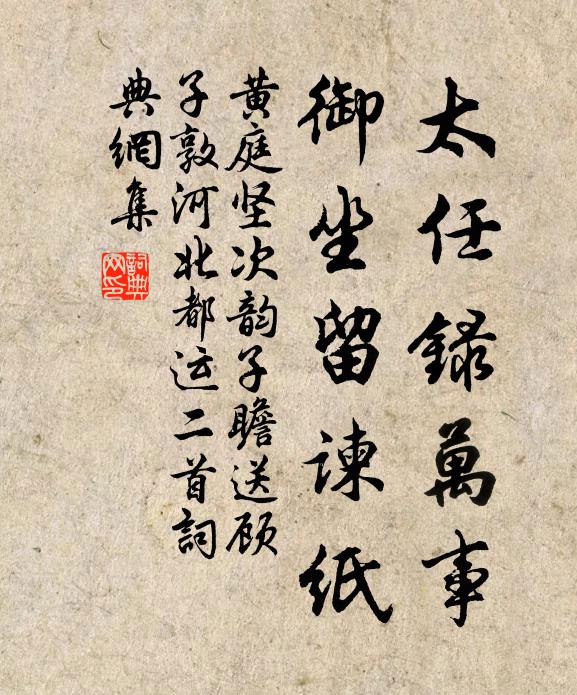 太任録萬事
御坐留諫紙
黄庭坚次韵子瞻送顾
子敦河北都运二首詞
典網集
詞典網印